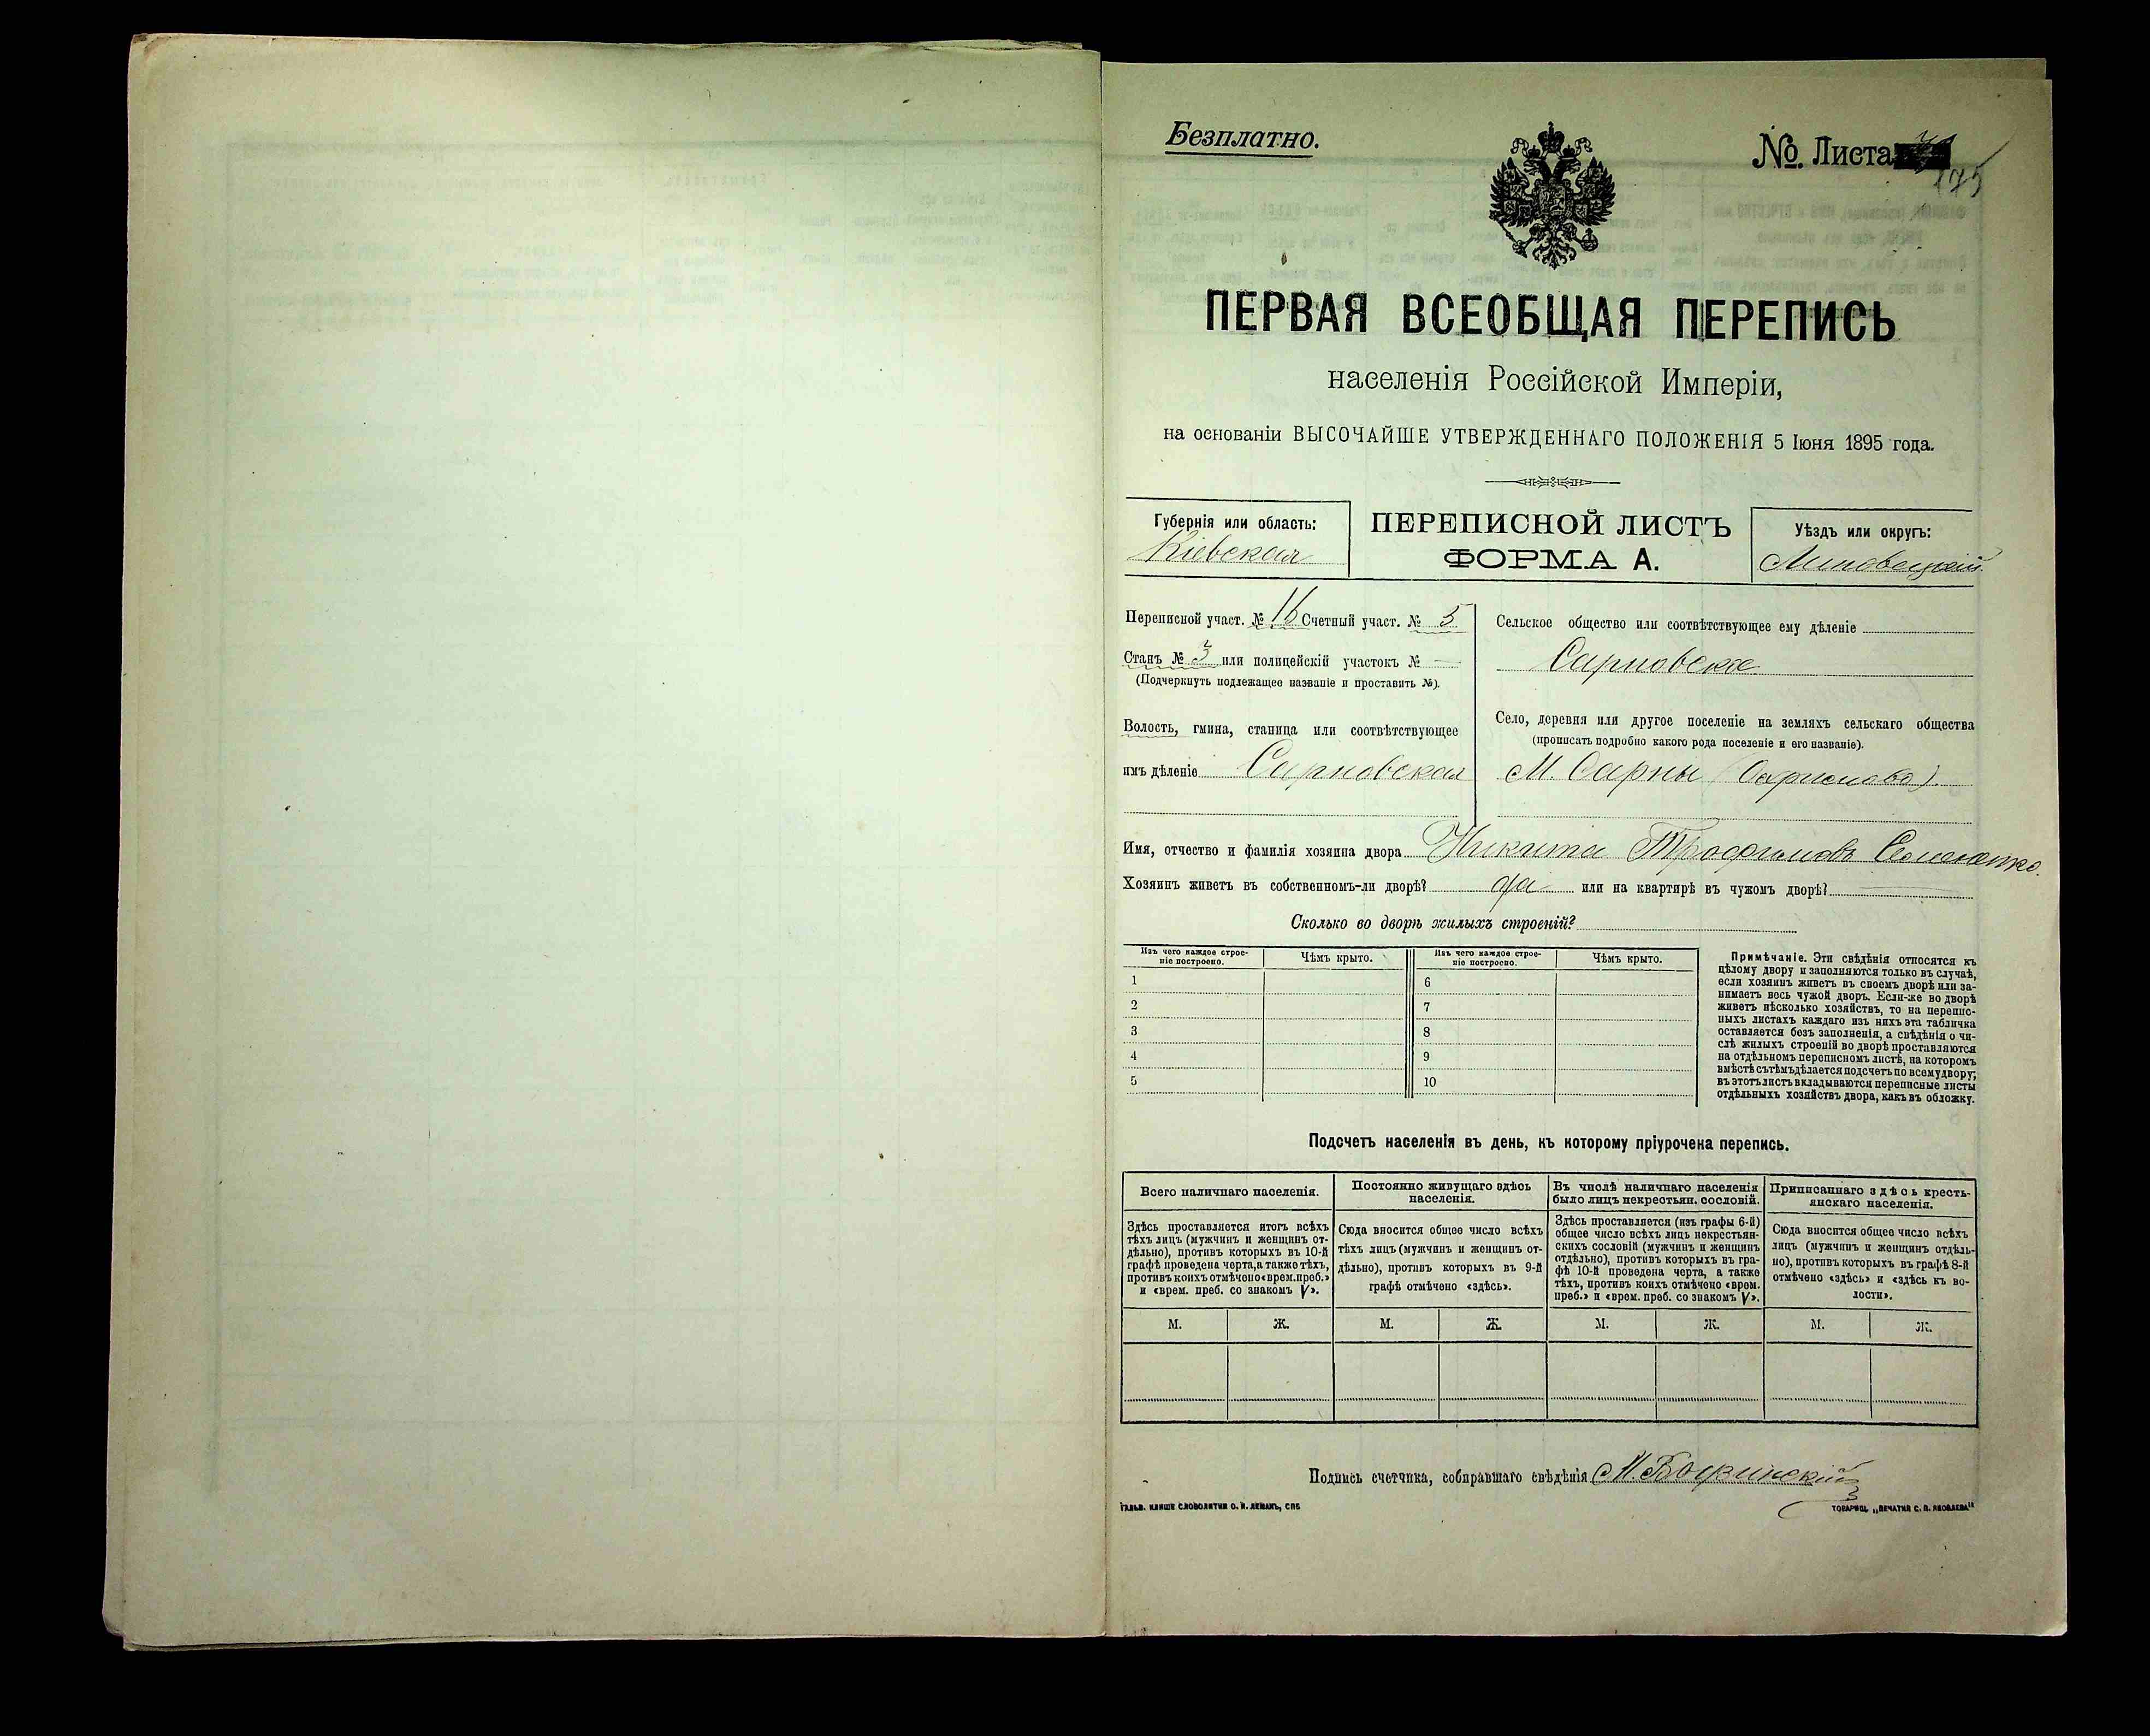 Безплатно.
№ Листа 175
ПЕРВАЯ ВСЕОБЩАЯ ПЕРЕПИСЬ
населенія Россійской Имперіи,
на основаніи ВЫСОЧАЙШЕ УТВЕРЖДЕННАГО ПОЛОЖЕНІЯ 5 Іюня 1895 года.
Губернія или область:
Кіевская
ПЕРЕПИСНОЙ ЛИСТЪ
ФОРМА А.
Уѣздъ или округъ:
Липовецкій
Переписной участ. № 16 Счетный участ. № 5
Станъ № 3 или полицейскій участокъ № —
(Подчеркнуть подлежащее названіе и проставить №).
Волость, гмина, станица или соотвѣтствующее
имъ дѣленіе Сарновская
Сельское общество или соотвѣтствующее ему дѣленіе
Сарновское
Село, деревня или другое поселеніе на земляхъ сельскаго общества
(прописать подробно какого рода поселеніе и его названіе).
М. Сарны
Имя, отчество и фамилія хозяина двора Никита Трофимовъ
Хозяинъ живетъ въ собственномъ-ли дворѣ? да или на квартирѣ въ чужомъ дворѣ? —
Сколько во дворѣ жилыхъ строеній?
Изъ чего каждое строе-
ніе построено.
Чѣмъ крыто.
Изъ чего каждое строе-
ніе построено.
Чѣмъ крыто.
1 6
2 7
3 8
4 9
5 10
Примѣчаніе. Эти свѣдѣнія относятся къ
цѣлому двору и заполняются только въ случаѣ,
если хозяинъ живетъ въ своемъ дворѣ или за-
нимаетъ весь чужой дворъ. Если-же во дворѣ
живетъ нѣсколько хозяйствъ, то на перепис-
ныхъ листахъ каждаго изъ нихъ эта табличка
оставляется безъ заполненія, а свѣдѣнія о чи-
слѣ жилыхъ строеній во дворѣ проставляются
на отдѣльномъ переписномъ листѣ, на которомъ
вмѣстѣ съ тѣмъ дѣлается подсчетъ по всему двору;
въ этотъ листъ вкладываются переписные листы
отдѣльныхъ хозяйствъ двора, какъ въ обложку.
Подсчетъ населенія въ день, къ которому пріурочена перепись.
Всего наличнаго населенія.
Здѣсь проставляется итогъ всѣхъ
тѣхъ лицъ (мужчинъ и женщинъ от-
дѣльно), противъ которыхъ въ 10-й
графѣ проведена черта, а также тѣхъ,
противъ коихъ отмѣчено «врем. преб.»
и «врем. преб. со знакомъ V».
Постоянно живущаго здѣсь
населенія.
Сюда вносится общее число всѣхъ
тѣхъ лицъ (мужчинъ и женщинъ от-
дѣльно), противъ которыхъ въ 9-й
графѣ отмѣчено «здѣсь».
Въ числѣ наличнаго населенія
было лицъ некрестьян. сословій.
Здѣсь проставляется (изъ графы 6-й)
общее число всѣхъ лицъ некрестьян-
скихъ сословій (мужчинъ и женщинъ
отдѣльно), противъ которыхъ въ гра-
фѣ 10-й проведена черта, а также
тѣхъ, противъ коихъ отмѣчено «врем.
преб.» и «врем. преб. со знакомъ V».
Приписаннаго здѣсь кресть-
янскаго населенія.
Сюда вносится общее число всѣхъ
лицъ (мужчинъ и женщинъ отдѣль-
но), противъ которыхъ въ графѣ 8-й
отмѣчено «здѣсь» и «здѣсь къ во-
лости».
М. Ж. М. Ж. М. Ж. М. Ж.
Подпись счетчика, собиравшаго свѣдѣнія
ГАЛЬВ. КЛИШЕ СЛОВОЛИТНИ О. И. ЛЕМАНЪ, СПБ
ТОВАРИЩ. „ПЕЧАТНЯ С. П. ЯКОВЛЕВА"